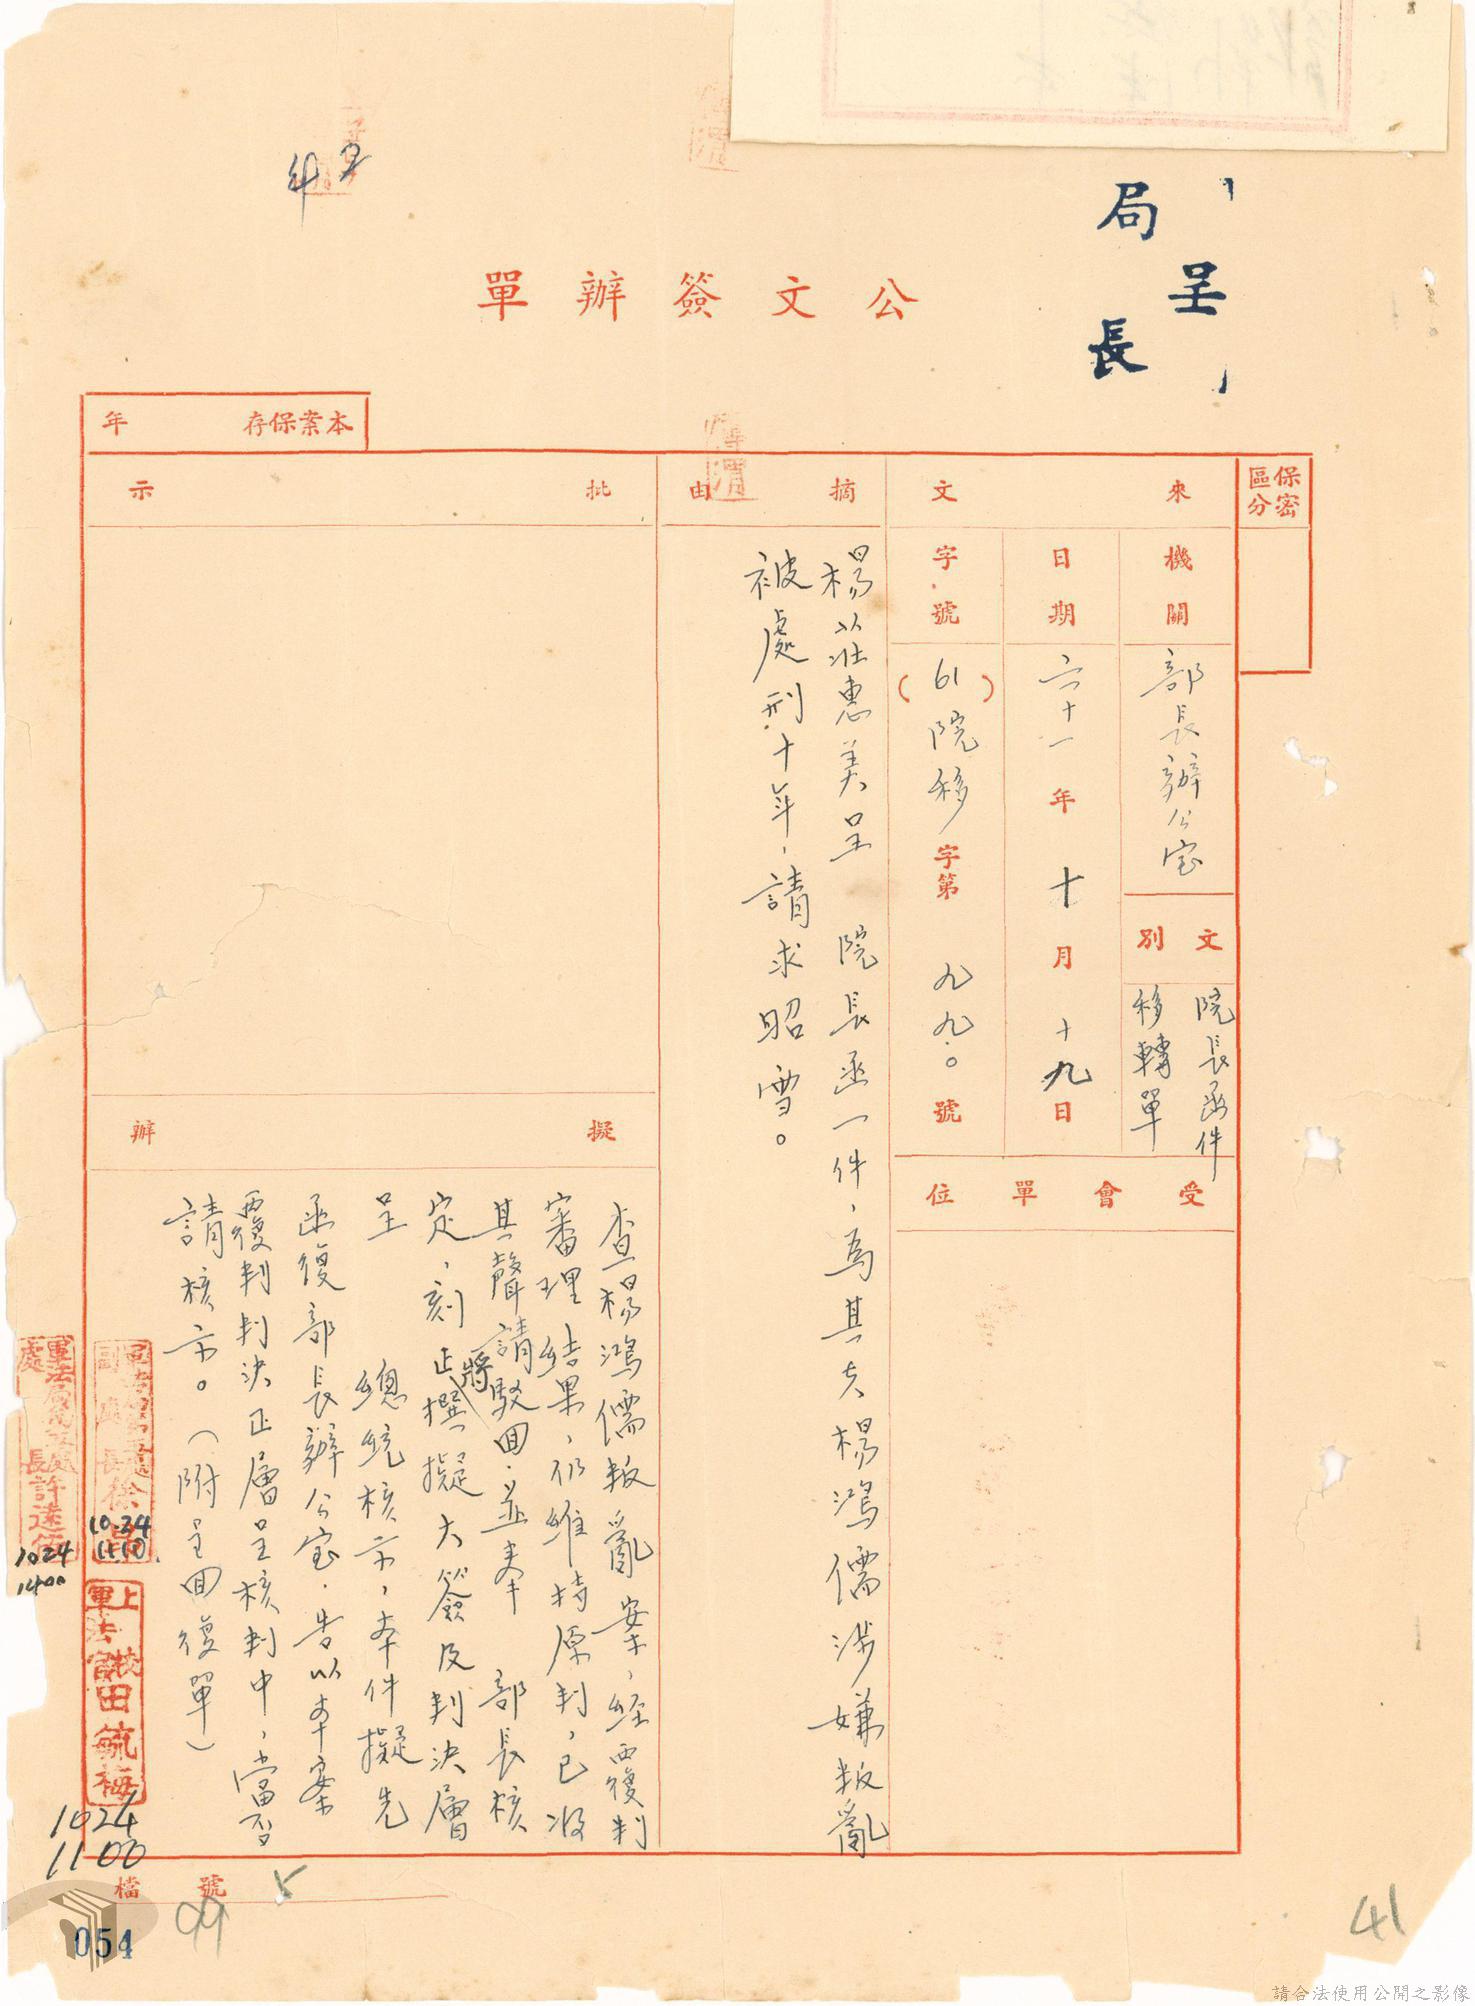 呈
局長
公文簽辦單
本案保存 年
保密區分
來文
機關
部長辦公室
文別
院長函件
移轉單
日期
六十一年十月十九日
字號
(61)院移字第九九〇號
受會單位
摘由
楊以莊惠美呈 院長函一件，為其夫楊鴻儒涉嫌叛亂
被處刑十年，請求昭雪。
批示
擬辦
查楊鴻儒叛亂案，經覆判
審理結果，仍維持原判，已將
其聲請駁回，並奉 部長核
定，刻正撰擬大簽及判決層
呈 總統核示，本件擬先
函復部長辦公室，告以本案
覆判判決正層呈核判中，當否
請核示。（附呈回復單）
上校軍法官田毓梅
1024
1100
10.24
1110.
處長許遠
1024
1400
檔號
99
5
054
41
請合法使用公開之影像